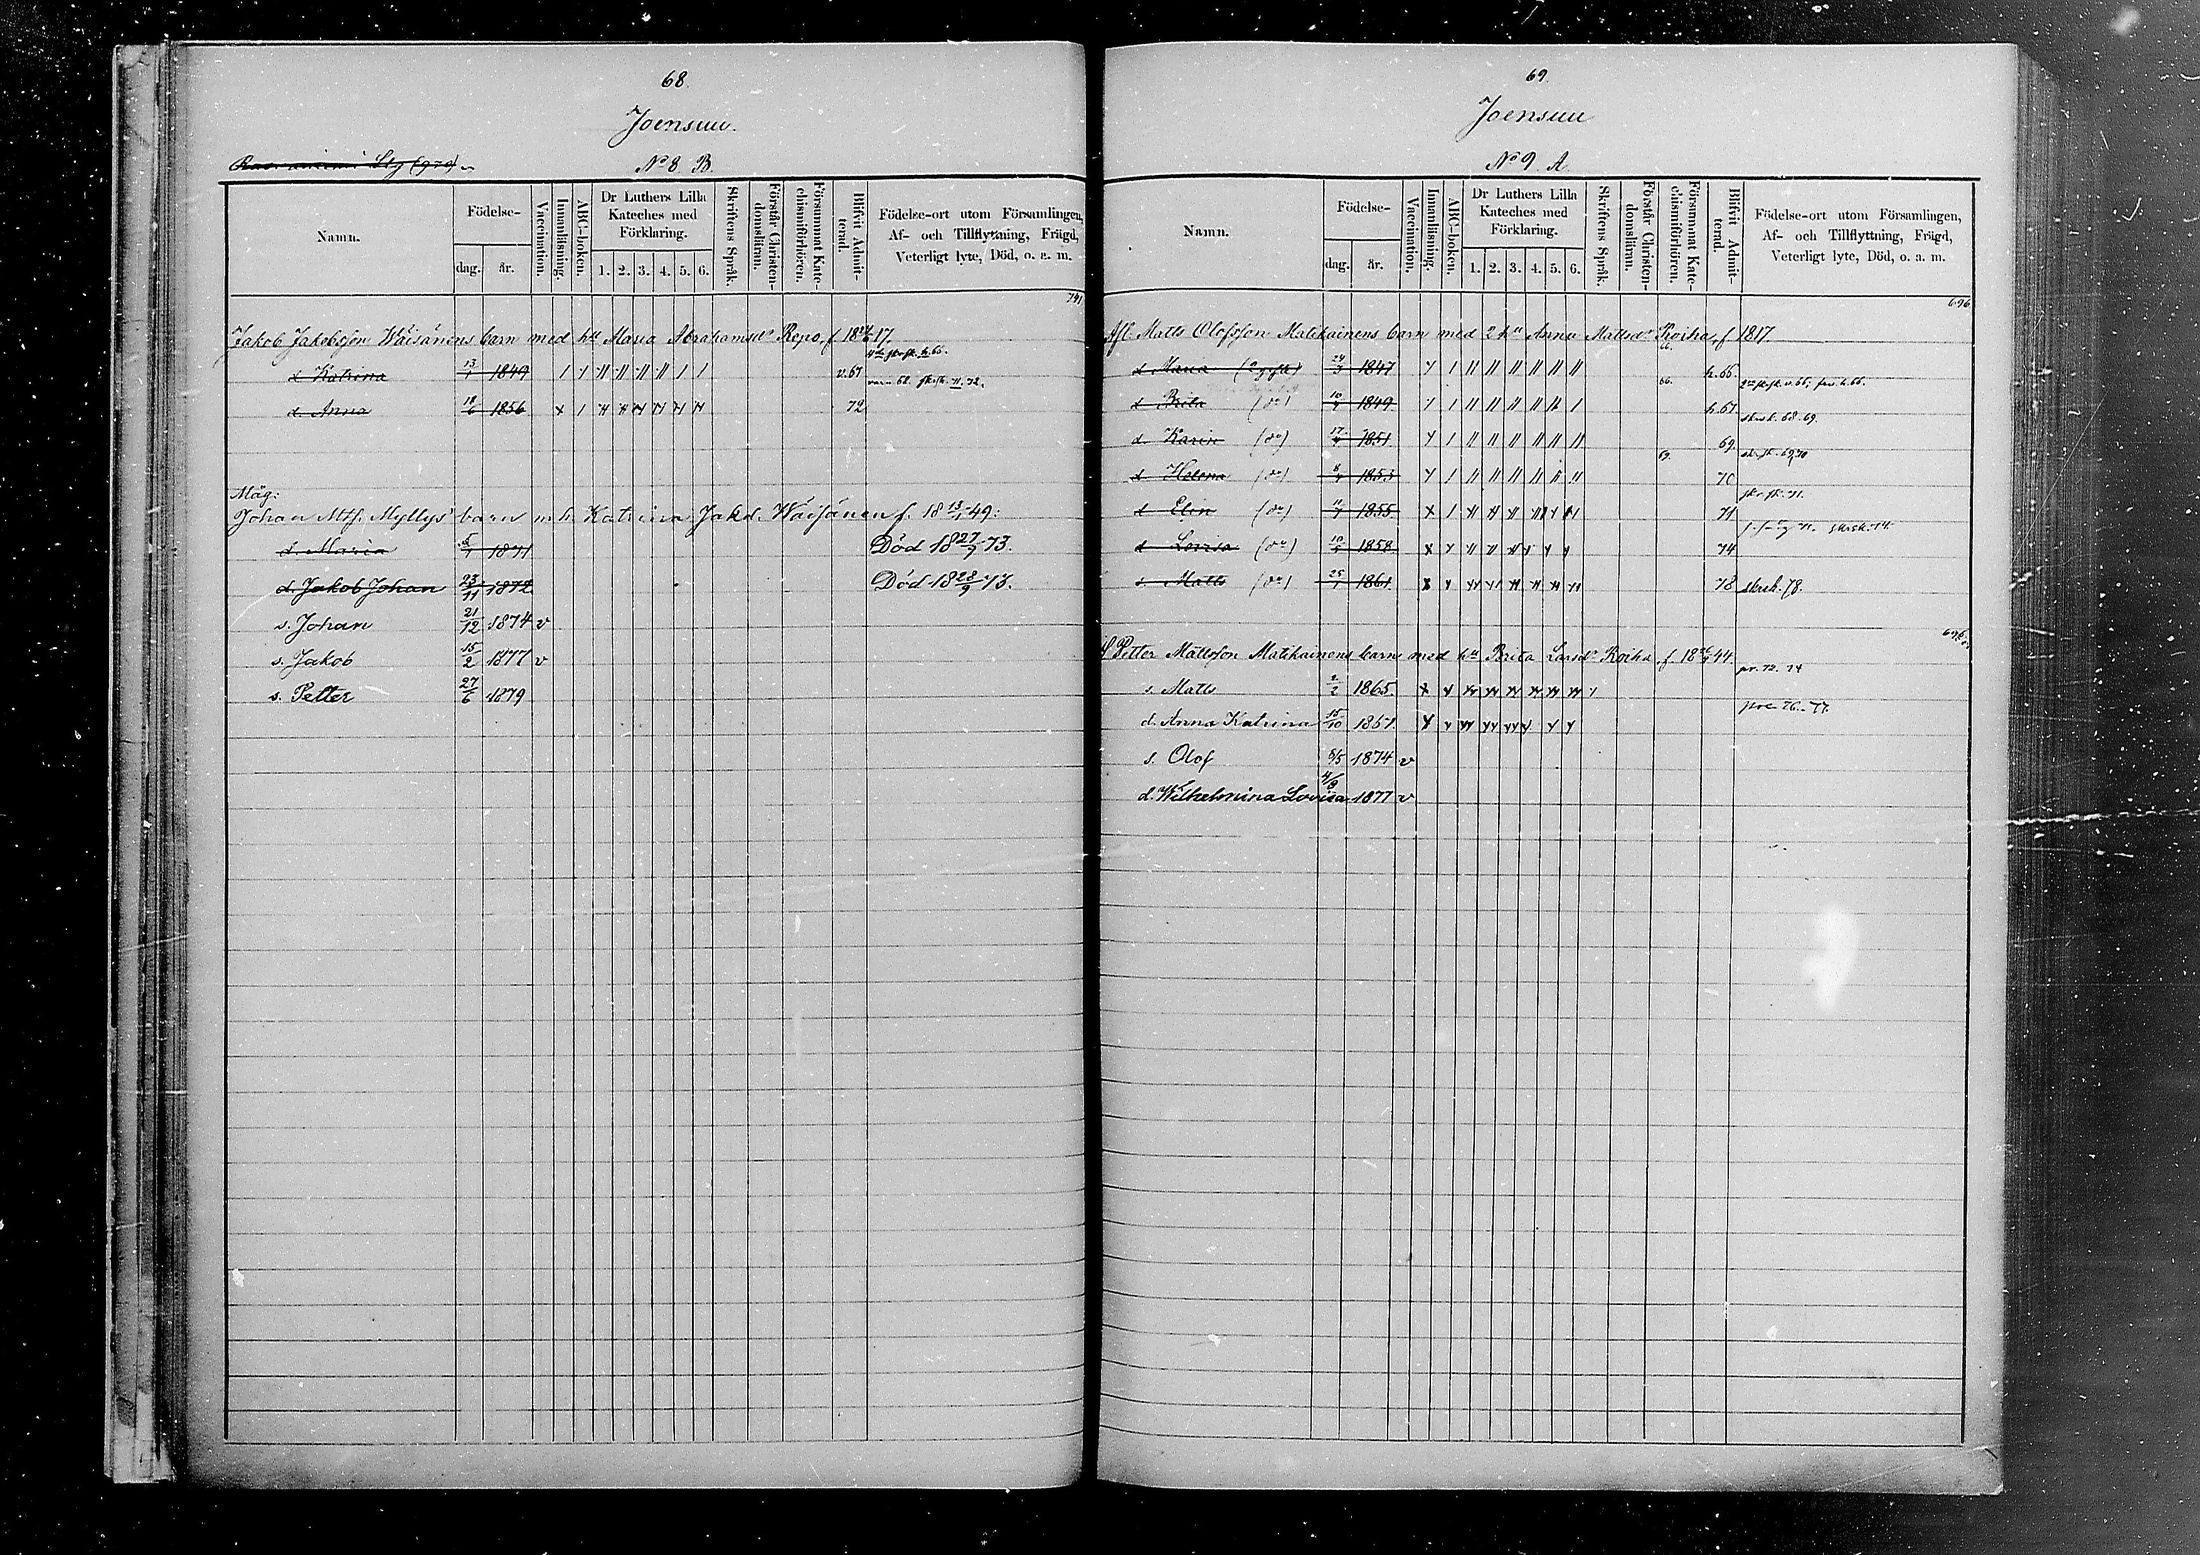 68.
Joensuu.
No 8 B.
Namn.
Födelse-
dag. år.
Vaccination.
Innanläsning.
ABC-boken.
Dr Luthers Lilla Kateches med Förklaring.
1. 2. 3. 4. 5. 6.
Skriftens Språk.
Förstår Christendomsläran.
Försummat Katechismförhören.
Blifvit Admitterad.
Födelse-ort utom Församlingen,
Af- och Tillflyttning, Frägd,
Veterligt lyte, Död, o. a. m.
741
Jakob Jakobsson Wäisänens barn med hu Maria Abrahamsdr Repo, f. 17.
d. Katrina 13/1 1849 v. 67
d. Anna 18/6 1856 72
Måg:
Johan Mtss. Myllys' barn m. h. Katrina Jakd. Wäisänen f. 18 13/1 49:
d. Maria 1871 Död 18 27/7 73.
d. Jakob Johan 23/11 1872 Död 18 28/9 73.
s. Johan 21/12 1874 v
s. Jakob 15/2 1877 v
s. Petter 27/6 1879
69.
Joensuu
No 9. A.
Namn.
Födelse-
dag. år.
Vaccination.
Innanläsning.
ABC-boken.
Dr Luthers Lilla Kateches med Förklaring.
1. 2. 3. 4. 5. 6.
Skriftens Språk.
Förstår Christendomsläran.
Försummat Katechismförhören.
Blifvit Admitterad.
Födelse-ort utom Församlingen,
Af- och Tillflyttning, Frägd,
Veterligt lyte, Död, o. a. m.
696
Afl. Matts Olofsson Matikainens barn med 2 hu Anna Mattsdr Roiha, f. 1817.
d. Maria 24/3 1847 h. 66.
d. Brita (do) 1849 h. 67
d. Karin (do) 1851 69
d. Helena (do) 1853 70
d. Elin (do) 1855 71
d. Lovisa (do) 1858 74
s. Matts (do) 1861 78 skrsk. 78.
Petter Mattsson Matikainens barn med hu Brita Larsdr Roiha, f. 44
s. Matts 1865
d. Anna Katrina 15/10 1867
s. Olof 1874 v
d. Wilhelmina Lovisa 4/8 1877 v